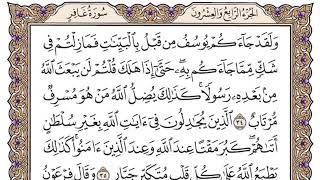 سُورَةُ غَافِرٍ الجُزْءُ الرَّابِعُ وَالعِشْرُونَ
وَلَقَدْ جَآءَكُمْ يُوسُفُ مِن قَبْلُ بِٱلْبَيِّنَٰتِ فَمَازِلْتُمْ فِي
شَكٍّ مِّمَّا جَآءَكُم بِهِۦ حَتَّىٰٓ إِذَا هَلَكَ قُلْتُمْ لَن يَبْعَثَ ٱللَّهُ
مِنۢ بَعْدِهِۦ رَسُولًا كَذَٰلِكَ يُضِلُّ ٱللَّهُ مَنْ هُوَ مُسْرِفٌ
مُّرْتَابٌ ٣٤ ٱلَّذِينَ يُجَٰدِلُونَ فِيٓ ءَايَٰتِ ٱللَّهِ بِغَيْرِ سُلْطَٰنٍ
أَتَىٰهُمْ كَبُرَ مَقْتًا عِندَ ٱللَّهِ وَعِندَ ٱلَّذِينَ ءَامَنُوا۟ كَذَٰلِكَ
يَطْبَعُ ٱللَّهُ عَلَىٰ كُلِّ قَلْبِ مُتَكَبِّرٍ جَبَّارٍ ٣٥ وَقَالَ فِرْعَوْنُ